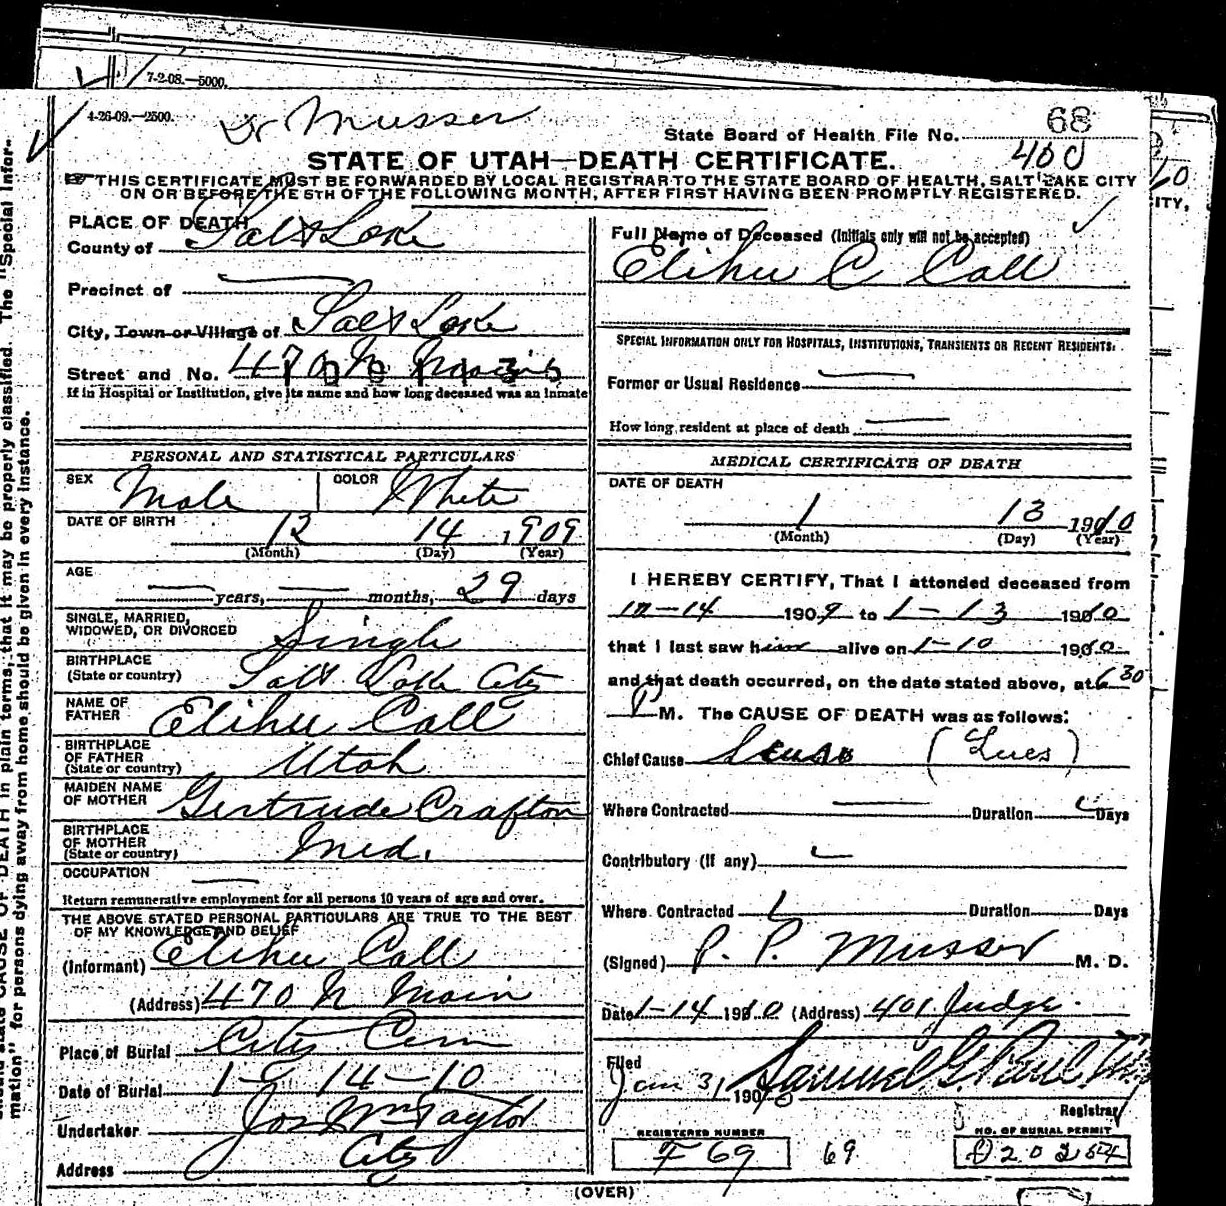 7-2-08.—5000.
4-26-09.—2500.
Dr Musser
State Board of Health File No. 68
400
STATE OF UTAH—DEATH CERTIFICATE.
THIS CERTIFICATE MUST BE FORWARDED BY LOCAL REGISTRAR TO THE STATE BOARD OF HEALTH, SALT LAKE CITY
ON OR BEFORE THE 5TH OF THE FOLLOWING MONTH, AFTER FIRST HAVING BEEN PROMPTLY REGISTERED.
ITY,
PLACE OF DEATH
County of Salt Lake
Precinct of —
City, Town or Village of Salt Lake
Street and No. 470 N
If in Hospital or Institution, give its name and how long deceased was an inmate
PERSONAL AND STATISTICAL PARTICULARS
SEX Male COLOR White
DATE OF BIRTH 12 14 1909
(Month) (Day) (Year)
AGE — years, — months, 29 days
SINGLE, MARRIED,
WIDOWED, OR DIVORCED Single
BIRTHPLACE
(State or country) Salt Lake City
NAME OF
FATHER Elihu Call
BIRTHPLACE
OF FATHER
(State or country) Utah
MAIDEN NAME
OF MOTHER Gertrude Crafton
BIRTHPLACE
OF MOTHER
(State or country) Ind.
OCCUPATION —
Return remunerative employment for all persons 10 years of age and over.
THE ABOVE STATED PERSONAL PARTICULARS ARE TRUE TO THE BEST
OF MY KNOWLEDGE AND BELIEF
(Informant) Elihu Call
(Address) 470 N Main
Place of Burial City Cem
Date of Burial 1-14-10
Undertaker Jos Wm Taylor
Address City
Full Name of Deceased (Initials only will not be accepted)
Elihu C Call
SPECIAL INFORMATION ONLY FOR HOSPITALS, INSTITUTIONS, TRANSIENTS OR RECENT RESIDENTS.
Former or Usual Residence —
How long resident at place of death —
MEDICAL CERTIFICATE OF DEATH
DATE OF DEATH
1 13 1910
(Month) (Day) (Year)
I HEREBY CERTIFY, That I attended deceased from
12-14 1909 to 1-13 1910
that I last saw him alive on 1-10 1910
and that death occurred, on the date stated above, at 6 30
P M. The CAUSE OF DEATH was as follows:
Chief Cause (Lues)
Where Contracted — Duration Days
Contributory (If any)
Where Contracted Duration Days
(Signed) P. P. Musser M. D.
Date 1-14 1910 (Address) 401 Judge
Filed
Jan 31 1910 Samuel G. Paul
Registrar
REGISTERED NUMBER
F 69
69
NO. OF BURIAL PERMIT
(OVER)
CAUSE OF DEATH in plain terms, that it may be properly classified. The "Special Infor-
mation" for persons dying away from home should be given in every instance.